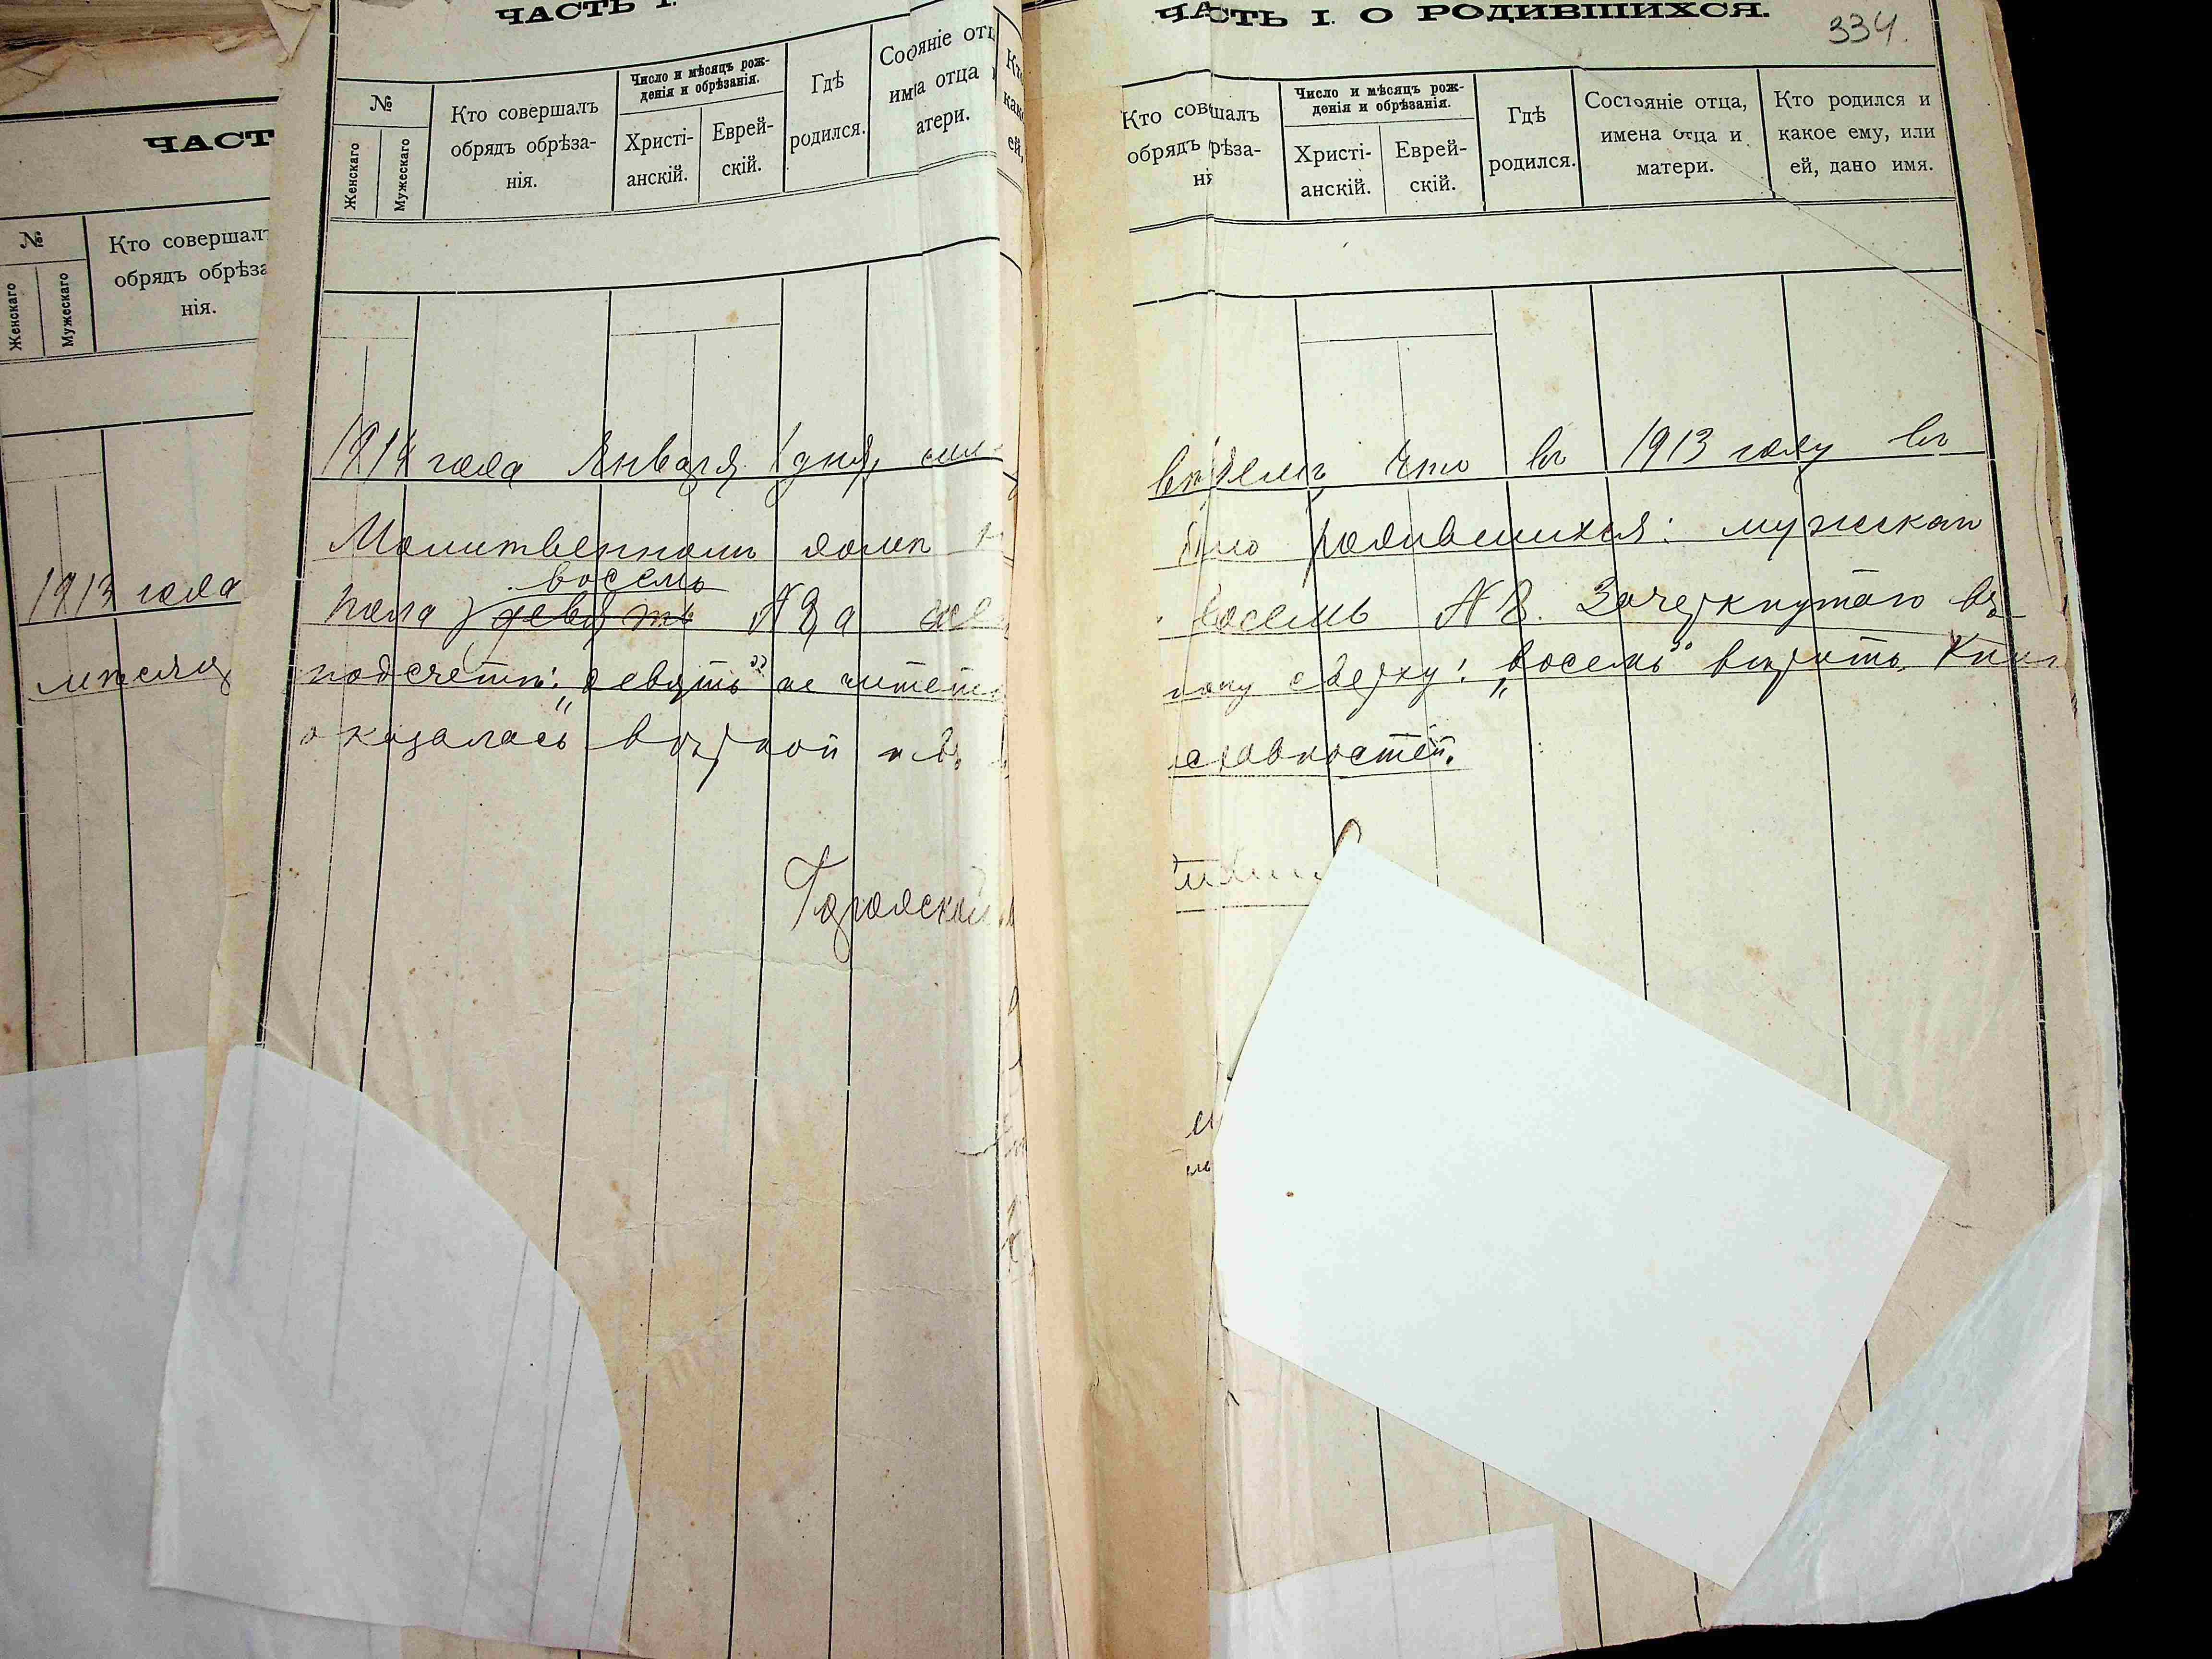 ЧАСТ
№
Женскаго
Мужескаго
Кто совершалъ
обрядъ обрѣза
нія.
1913 года
мѣсяц
ЧАСТЬ I.
№
Женскаго
Мужескаго
Кто совершалъ
обрядъ обрѣза-
нія.
Число и мѣсяцъ рож-
денія и обрѣзанія.
Христі-
анскій.
Еврей-
скій.
Гдѣ
родился.
Состояніе отц
имена отца
матери.
1914 года Января 1 дня,
Молитвенномъ домѣ
восемь
пола девять № а
подсчетѣ: „девять" не читать
оказалась вѣрной и въ
Городской
ЧАСТЬ I. О РОДИВШИХСЯ.
334.
Кто совершалъ
обрядъ обрѣза-
нія
Число и мѣсяцъ рож-
денія и обрѣзанія.
Христі-
анскій.
Еврей-
скій.
Гдѣ
родился.
Состояніе отца,
имена отца и
матери.
Кто родился и
какое ему, или
ей, дано имя.
что въ 1913 году въ
было родившихся: мужскаго
восемь № 8. Зачеркнутаго въ
сверху: „восемь" вѣрить. Книг